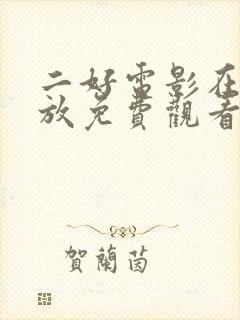 二好雷影在
放免費觀看
賀蘭茵